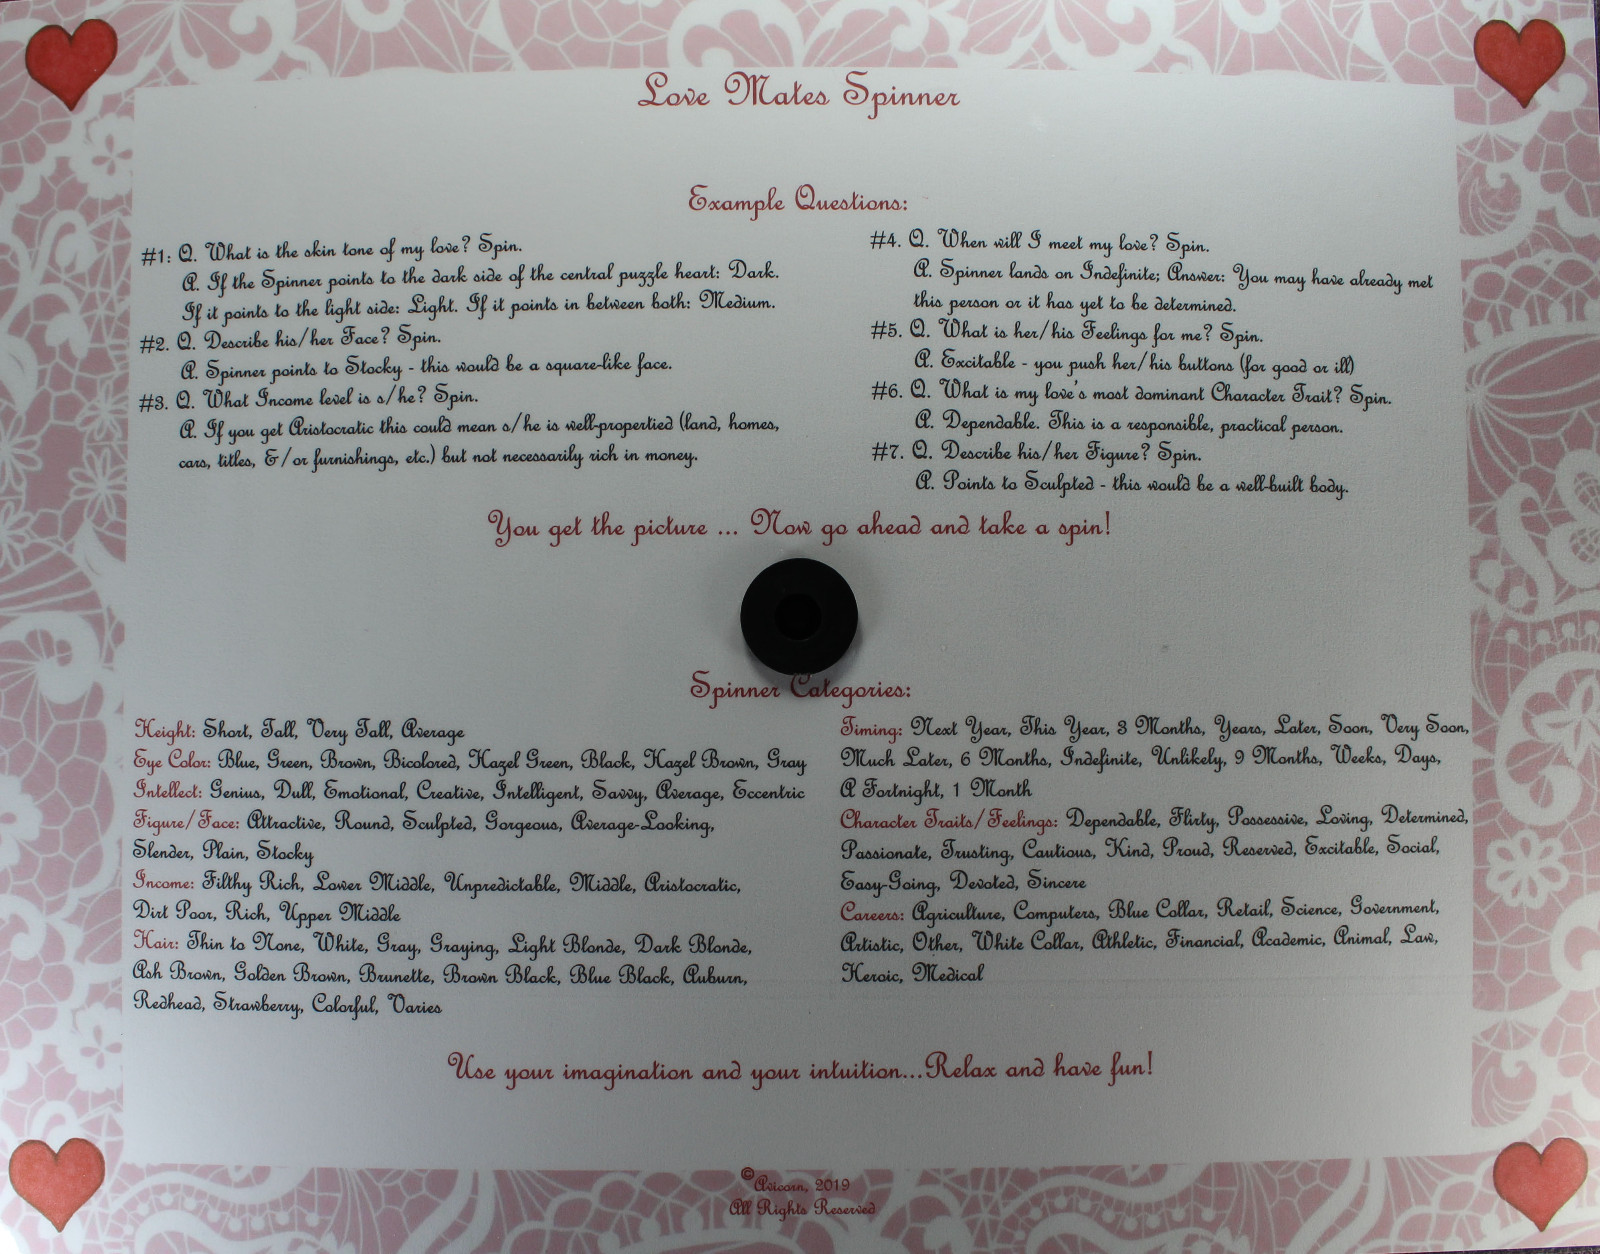 Love Mates Spinner
Example Questions:
#1: Q. What is the skin tone of my love? Spin.
A. If the Spinner points to the dark side of the central puzzle heart: Dark.
If it points to the light side: Light. If it points in between both: Medium.
#2. Q. Describe his/her Face? Spin.
A. Spinner points to Stocky - this would be a square-like face.
#3. Q. What Income level is s/he? Spin.
A. If you get Aristocratic this could mean s/he is well-propertied (land, homes,
cars, titles, &/or furnishings, etc.) but not necessarily rich in money.
#4. Q. When will I meet my love? Spin.
A. Spinner lands on Indefinite; Answer: You may have already met
this person or it has yet to be determined.
#5. Q. What is her/his Feelings for me? Spin.
A. Excitable - you push her/his buttons (for good or ill)
#6. Q. What is my love's most dominant Character Trait? Spin.
A. Dependable. This is a responsible, practical person.
#7. Q. Describe his/her Figure? Spin.
A. Points to Sculpted - this would be a well-built body.
You get the picture ... Now go ahead and take a spin!
Spinner Categories:
Height: Short, Tall, Very Tall, Average
Eye Color: Blue, Green, Brown, Bicolored, Hazel Green, Black, Hazel Brown, Gray
Intellect: Genius, Dull, Emotional, Creative, Intelligent, Savvy, Average, Eccentric
Figure/Face: Attractive, Round, Sculpted, Gorgeous, Average-Looking,
Slender, Plain, Stocky
Income: Filthy Rich, Lower Middle, Unpredictable, Middle, Aristocratic,
Dirt Poor, Rich, Upper Middle
Hair: Thin to None, White, Gray, Graying, Light Blonde, Dark Blonde,
Ash Brown, Golden Brown, Brunette, Brown Black, Blue Black, Auburn,
Redhead, Strawberry, Colorful, Varies
Timing: Next Year, This Year, 3 Months, Years, Later, Soon, Very Soon,
Much Later, 6 Months, Indefinite, Unlikely, 9 Months, Weeks, Days,
A Fortnight, 1 Month
Character Traits/Feelings: Dependable, Flirty, Possessive, Loving, Determined,
Passionate, Trusting, Cautious, Kind, Proud, Reserved, Excitable, Social,
Easy-Going, Devoted, Sincere
Careers: Agriculture, Computers, Blue Collar, Retail, Science, Government,
Artistic, Other, White Collar, Athletic, Financial, Academic, Animal, Law,
Heroic, Medical
Use your imagination and your intuition...Relax and have fun!
© Avicorn, 2019
All Rights Reserved